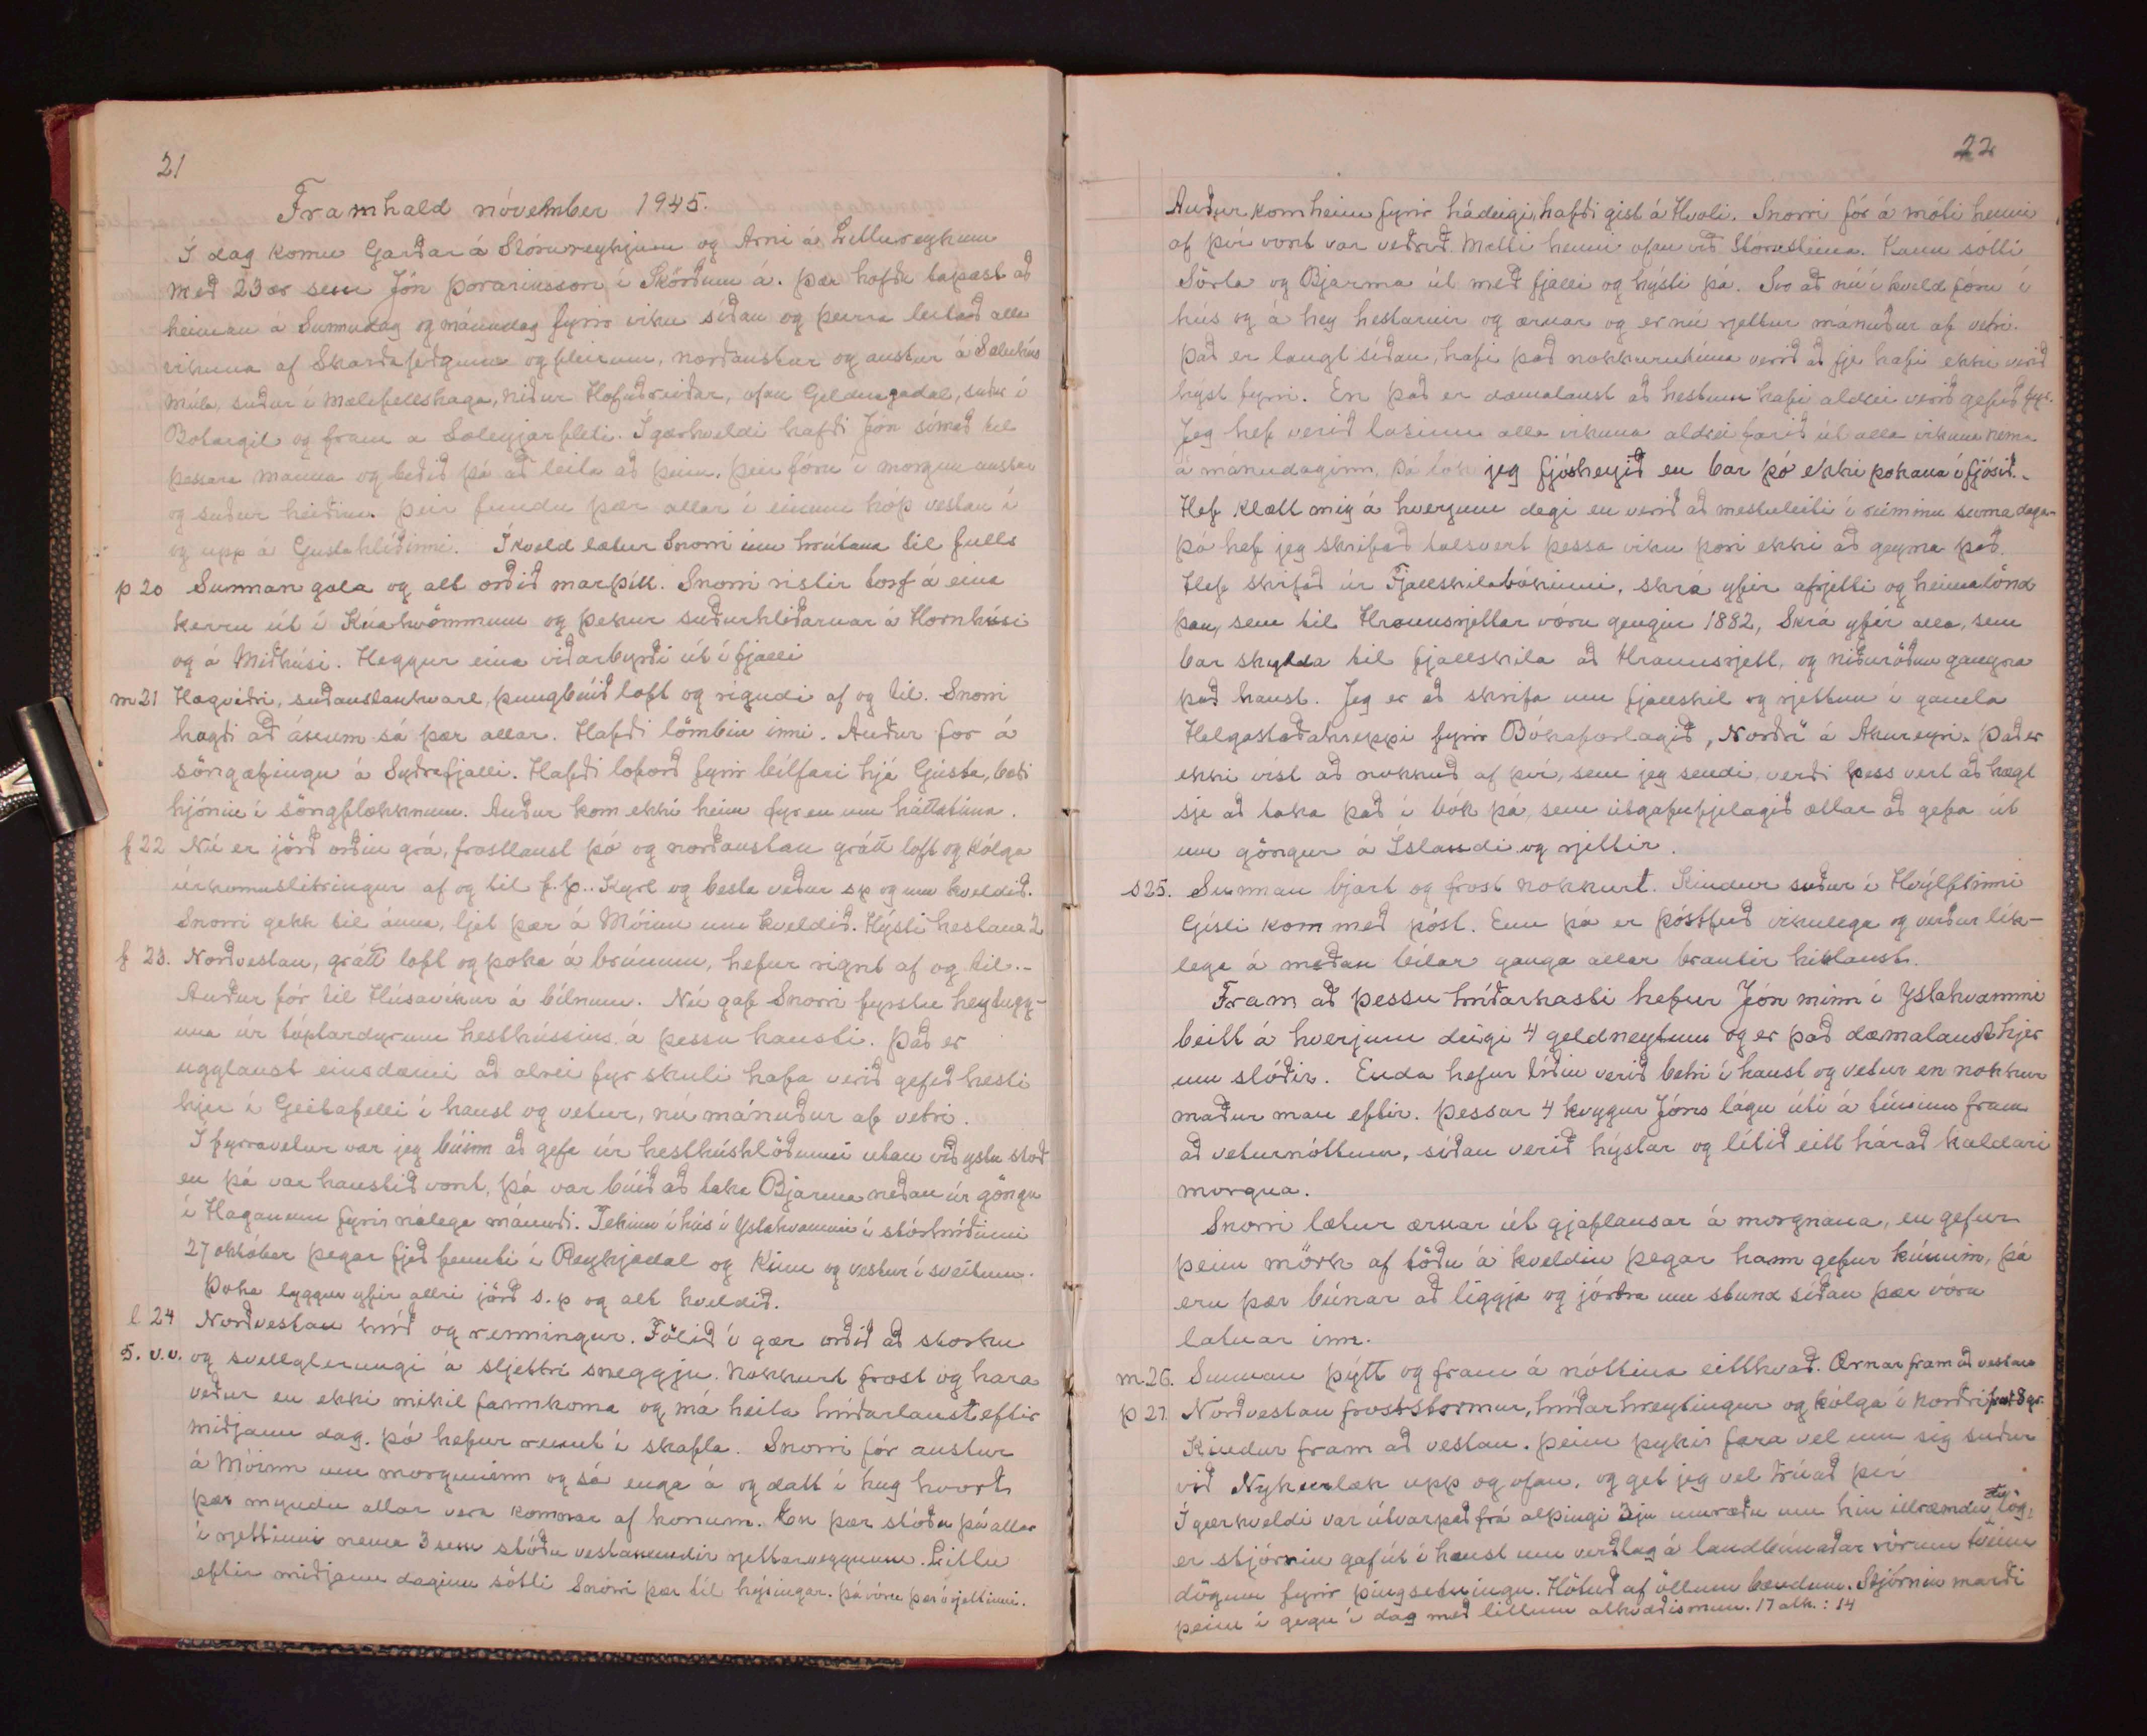 21
Framhald nóvember 1945.
Í dag komu Garðar á Stórureykjum og Arni á Litlureykjum
með 23 ær sem Jón Þorarinsson í Skörðum á. Þær höfðu tapast að
heiman á Sunnudag og mánudag fyrir viku síðan og þeirra leitað alla
vikuna af Skarðafeðgum og fleirum, norðaustur og austur á Sæluhús
múla, suður í Mælifellshaga, niður Hofuðreiðar, ofan Geldingadal, suður í
Botnsgil og fram a Soleyjarfleti. Ígærkveldi hafði Jón símað til
þessara manna og beðið þá að leita að þeim. Þeir fóru í morgun austur
og suður heiðina. Þeir fundu þær allar í einum hóp vestan í
og upp á Gustahlíðinni. Íkveld lætur Snorri inn hrútana til fulls
þ 20 Sunnan gola og alt orðið marþítt. Snorri ristir torf á eina
kerru út í Kúahvömmum og þekur suðurhliðarnar á Hornhúsi
og á Miðhúsi. Heggur eina viðarbyrði út í fjalli
m 21 Hægviðri, suðaustankvarl, þungbúið loft og rigndi af og til. Snorri
hugði að ánum sá þær allar. Hafði lömbin inni. Auður for á
söngæfingu á Syðrafjalli. Hafði loforð fyrir bílfari hjá Gústa, bæði
hjónin í söngflokknum. Auður kom ekki heim fyr en um háttatíma.
f 22 Nú er jörð orðin grá, frostlaust þó og norðaustan grátt loft og kólga
úrkomuslitringur af og til f.p.. Kyrt og besta veður sp og um kveldið.
Snorri gekk til ánna, ljet þær á Móinn um kveldið. Hýsti hestana 2
f 23. Norðvestan, grátt loft og þoka á brúnum, hefur rignt af og til.-
Auður fór til Húsavíkur á bílnum. Nú gaf Snorri fyrstu heytugg-
una úr tóptardyrum hesthússins á þessu hausti. Það er
ugglaust einsdæmi að alrei fyr skuli hafa verið gefið hesti
hjer í Geitafelli í haust og vetur, nú mánuður af vetri.
Í fyrravetur var jeg búinn að gefa úr hesthúshlöðunni utan við ystu stoð
en þá var haustið vont, þá var búið að taka Bjarma neðan úr göngu
í Haganum fyrir nálega mánuði. Tekinn í hús í Ystahvammi í stórhríðinni
27 október þegar fjeð fennti í Reykjadal og Kinn og vestur í sveitum.
Þoka lyggur yfir allri jörð s.p og alt kveldið.
l 24 Norðvestan hríð og renningur. Fölið í gær orðið að storku
5. v.v. og svellglerungi á sljettri sneggju. Nokkurt frost og hara
veður en ekki mikil fannkoma og má heita hríðarlaust eftir
miðjann dag. Þó hefur rennt í skafla. Snorri fór austur
á Móinn um morguninn og sá enga á og datt í hug hvort
þær myndu allar vera komnar af honum. En þær stóðu þá allar
í rjettinni nema 3 sem stóðu vestanundir rjettarveggnum. Litlu
eftir miðjann daginn sótti Snorri þær til hýsingar. Þá vóru þær í rjettinni.
22
Auður kom heim fyrir hádeigi, hafði gist á Hvoli. Snorri fór á móti henni
af því vont var veðrið. Mætti henni ofan við Stórusteina. Hann sótti
Sörla og Bjarma út með fjalli og hýsti þá. Svo að nú í kveld fóru í
hús og á hey hestarnir og ærnar og er nú rjettur mánuður af vetri.
Það er langt síðan, hafi það nokkurntíma verið að fje hafi ekki verið
hýst fyrri. En það er dæmalaust að hestum hafi aldrei verið gefið fyr.
Jeg hef verið lasinn alla vikuna aldrei farið út alla vikuna nema
á mánudaginn. Þá tók jeg fjósheyið en bar þó ekki pokana í fjósið..
Hef klætt mig á hverjum degi en verið að mestuleiti í rúminu suma daga-
Þó hef jeg skrifað talsvert þessa viku þori ekki að geyma það.
Hef skrifað úr Fjallskilabókinni, skrá yfir afrjetti og heimalönd
þau, sem til Hraunsrjettar vóru gengin 1882, Skrá yfir alla, sem
bar skylda til fjallskila að Hraunsrjett, og niðurröðun gangna
það haust. Jeg er að skrifa um fjallskil og rjettum í gamla
Helgastaðahreppi fyrir Bókaforlagið „Norðri" á Akureyri. Það er
ekki víst að nokkuð af því, sem jeg sendi, verði þess vert að hægt
sje að taka það í bók þá, sem útgáfufjelagið ætlar að gefa út
um göngur á Íslandi og rjettir.
s 25. Sunnan bjart og frost nokkurt. Kindur suður í Hvýlftinni
Gísli kom með póst. Enn þá er póstferð vikulega og verður lík-
lega á meðan bílar ganga allar brautir hiklaust.
Fram að þessu hríðarkasti hefur Jón minn í Ystahvammi
beitt á hverjum deigi 4 geldneytum og er það dæmalaust hjer
um slóðir. Enda hefur tíðin verið betri í haust og vetur en nokkur
maður man eftir. Þessar 4 kvygur Jóns lágu úti á túninu fram
að veturnóttum, síðan verið hýstar og lítið eitt hárað kaldari
morgna.
Snorri lætur ærnar út gjaflausar á morgnana, en gefur
þeim mörk af töðu á kveldin þegar hann gefur kúnum, þá
eru þær búnar að liggja og jórtra um stund síðan þær vóru
látnar inn.
m.26. Sunnan þýtt og fram á nóttina eitthvað. Ærnar fram að vestan
þ 27 Norðvestan froststormur, hríðarhreytingur og kólga í norðri frost 8 gr.
Kindur fram að vestan. Þeim þykir fara vel um sig suður
við Nykurlæk upp og ofan, og get jeg vel trúað því
Í gærkveldi var útvarpað frá alþingi 3ju umræðu um hin illræmdu lög,
er stjórnin gaf út í haust um verðlag á landbúnaðar vörum tveim
dögum fyrir þingsetningu. Hötuð af öllum bændum. Stjórnin marði
þeim í gegn í dag með litlum atkvæðismun. 17 atk. : 14